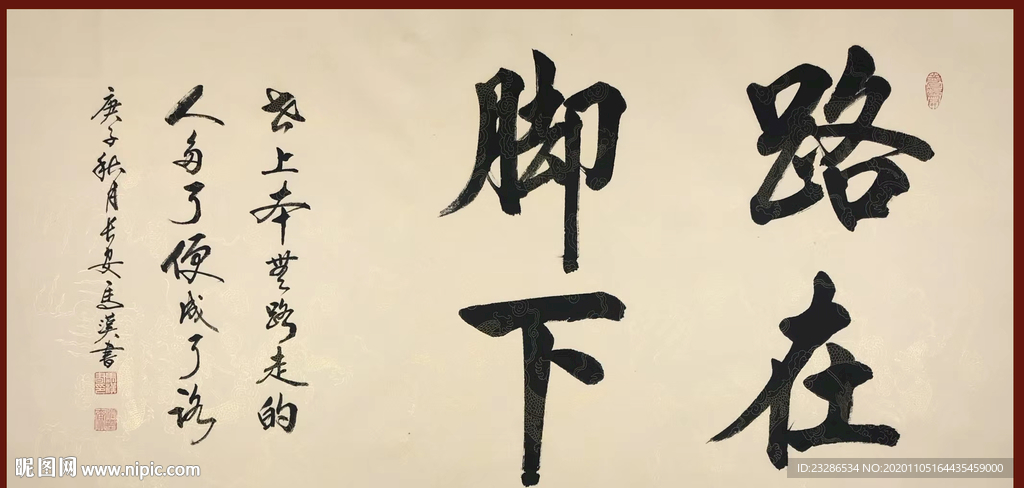 路在
脚下
世上本無路走的
人多了便成了路
庚子秋月长安馬漢書
昵图网 www.nipic.com
ID:23286534 NO:20201105164435459000